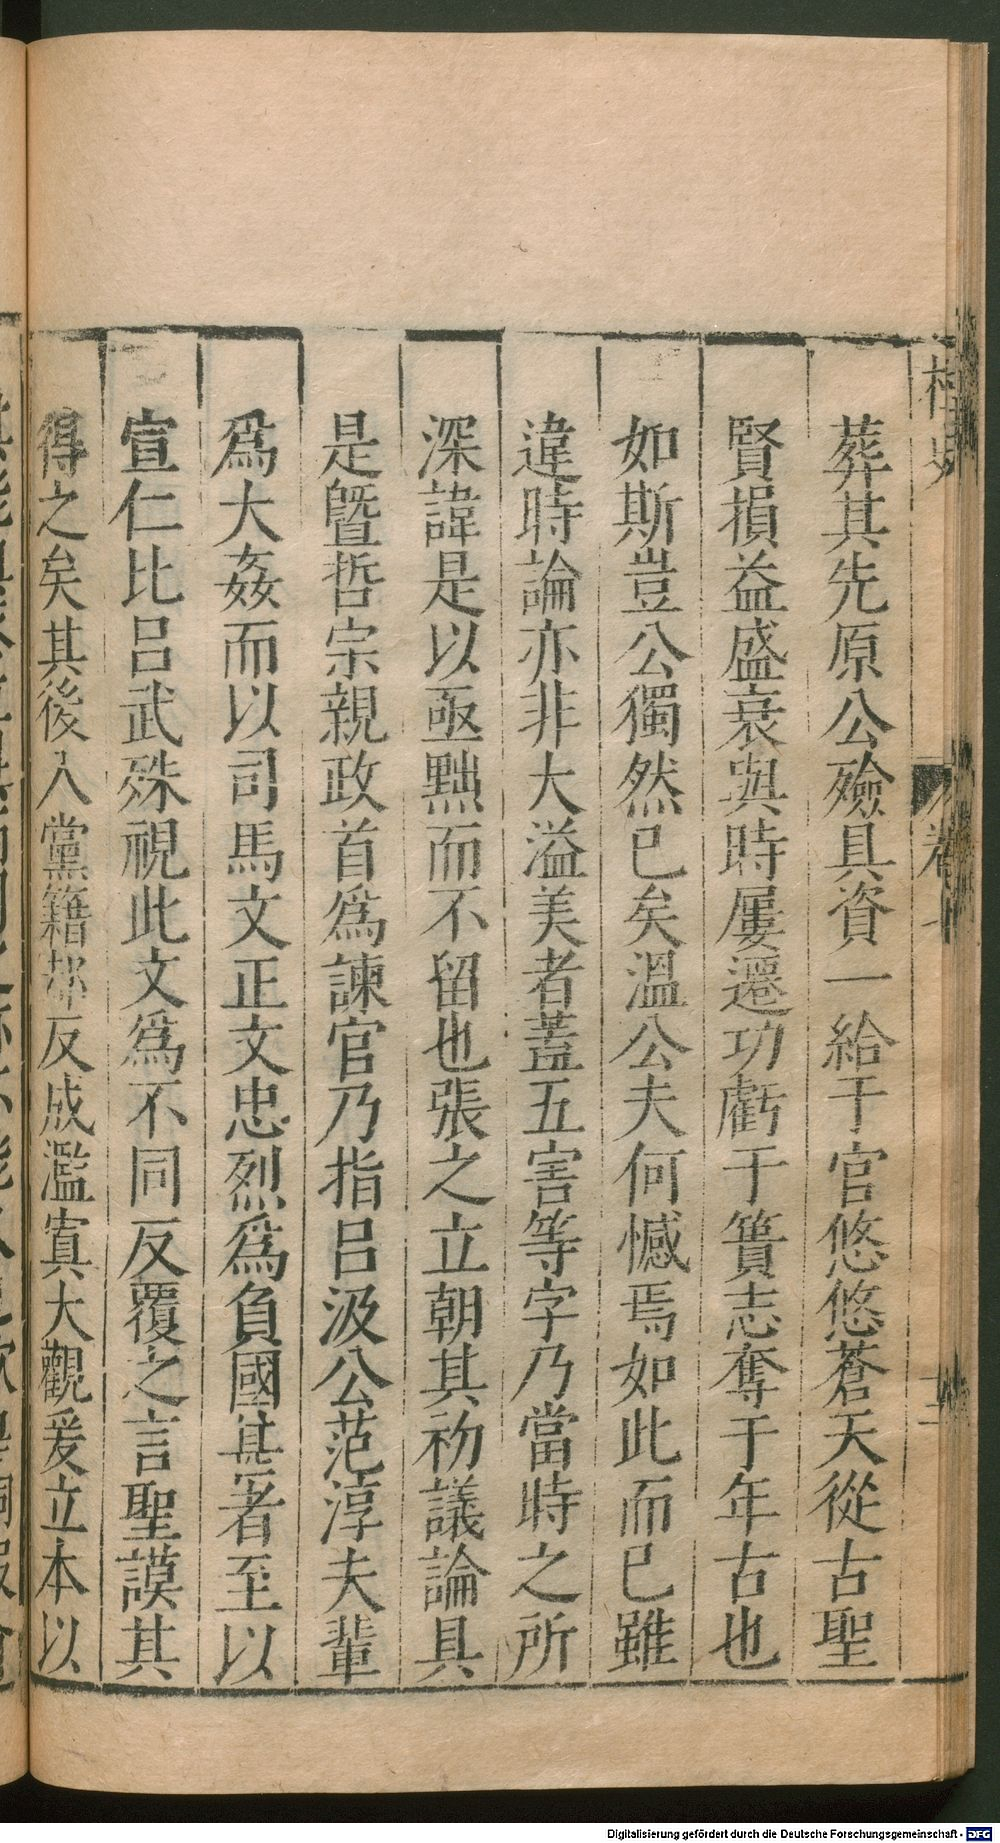 葬其先原公殮具資一給于官悠悠蒼天從古聖
賢損益盛衰與時屢遷功虧于簣志奪于年古也
如斯豈公獨然已矣溫公夫何憾焉如此而已雖
違時論亦非大溢美者蓋五害等字乃當時之所
深諱是以亟黜而不留也張之立朝其初議論具
是曁哲宗親政首爲諫官乃指呂汲公范淳夫輩
爲大姦而以司馬文正文忠烈爲負國甚者至以
宣仁比呂武殊視此文爲不同反覆之言聖謨其
得之矣其後入黨籍却反成濫寘大觀爰立本以
Digitalisierung gefördert durch die Deutsche Forschungsgemeinschaft - DFG